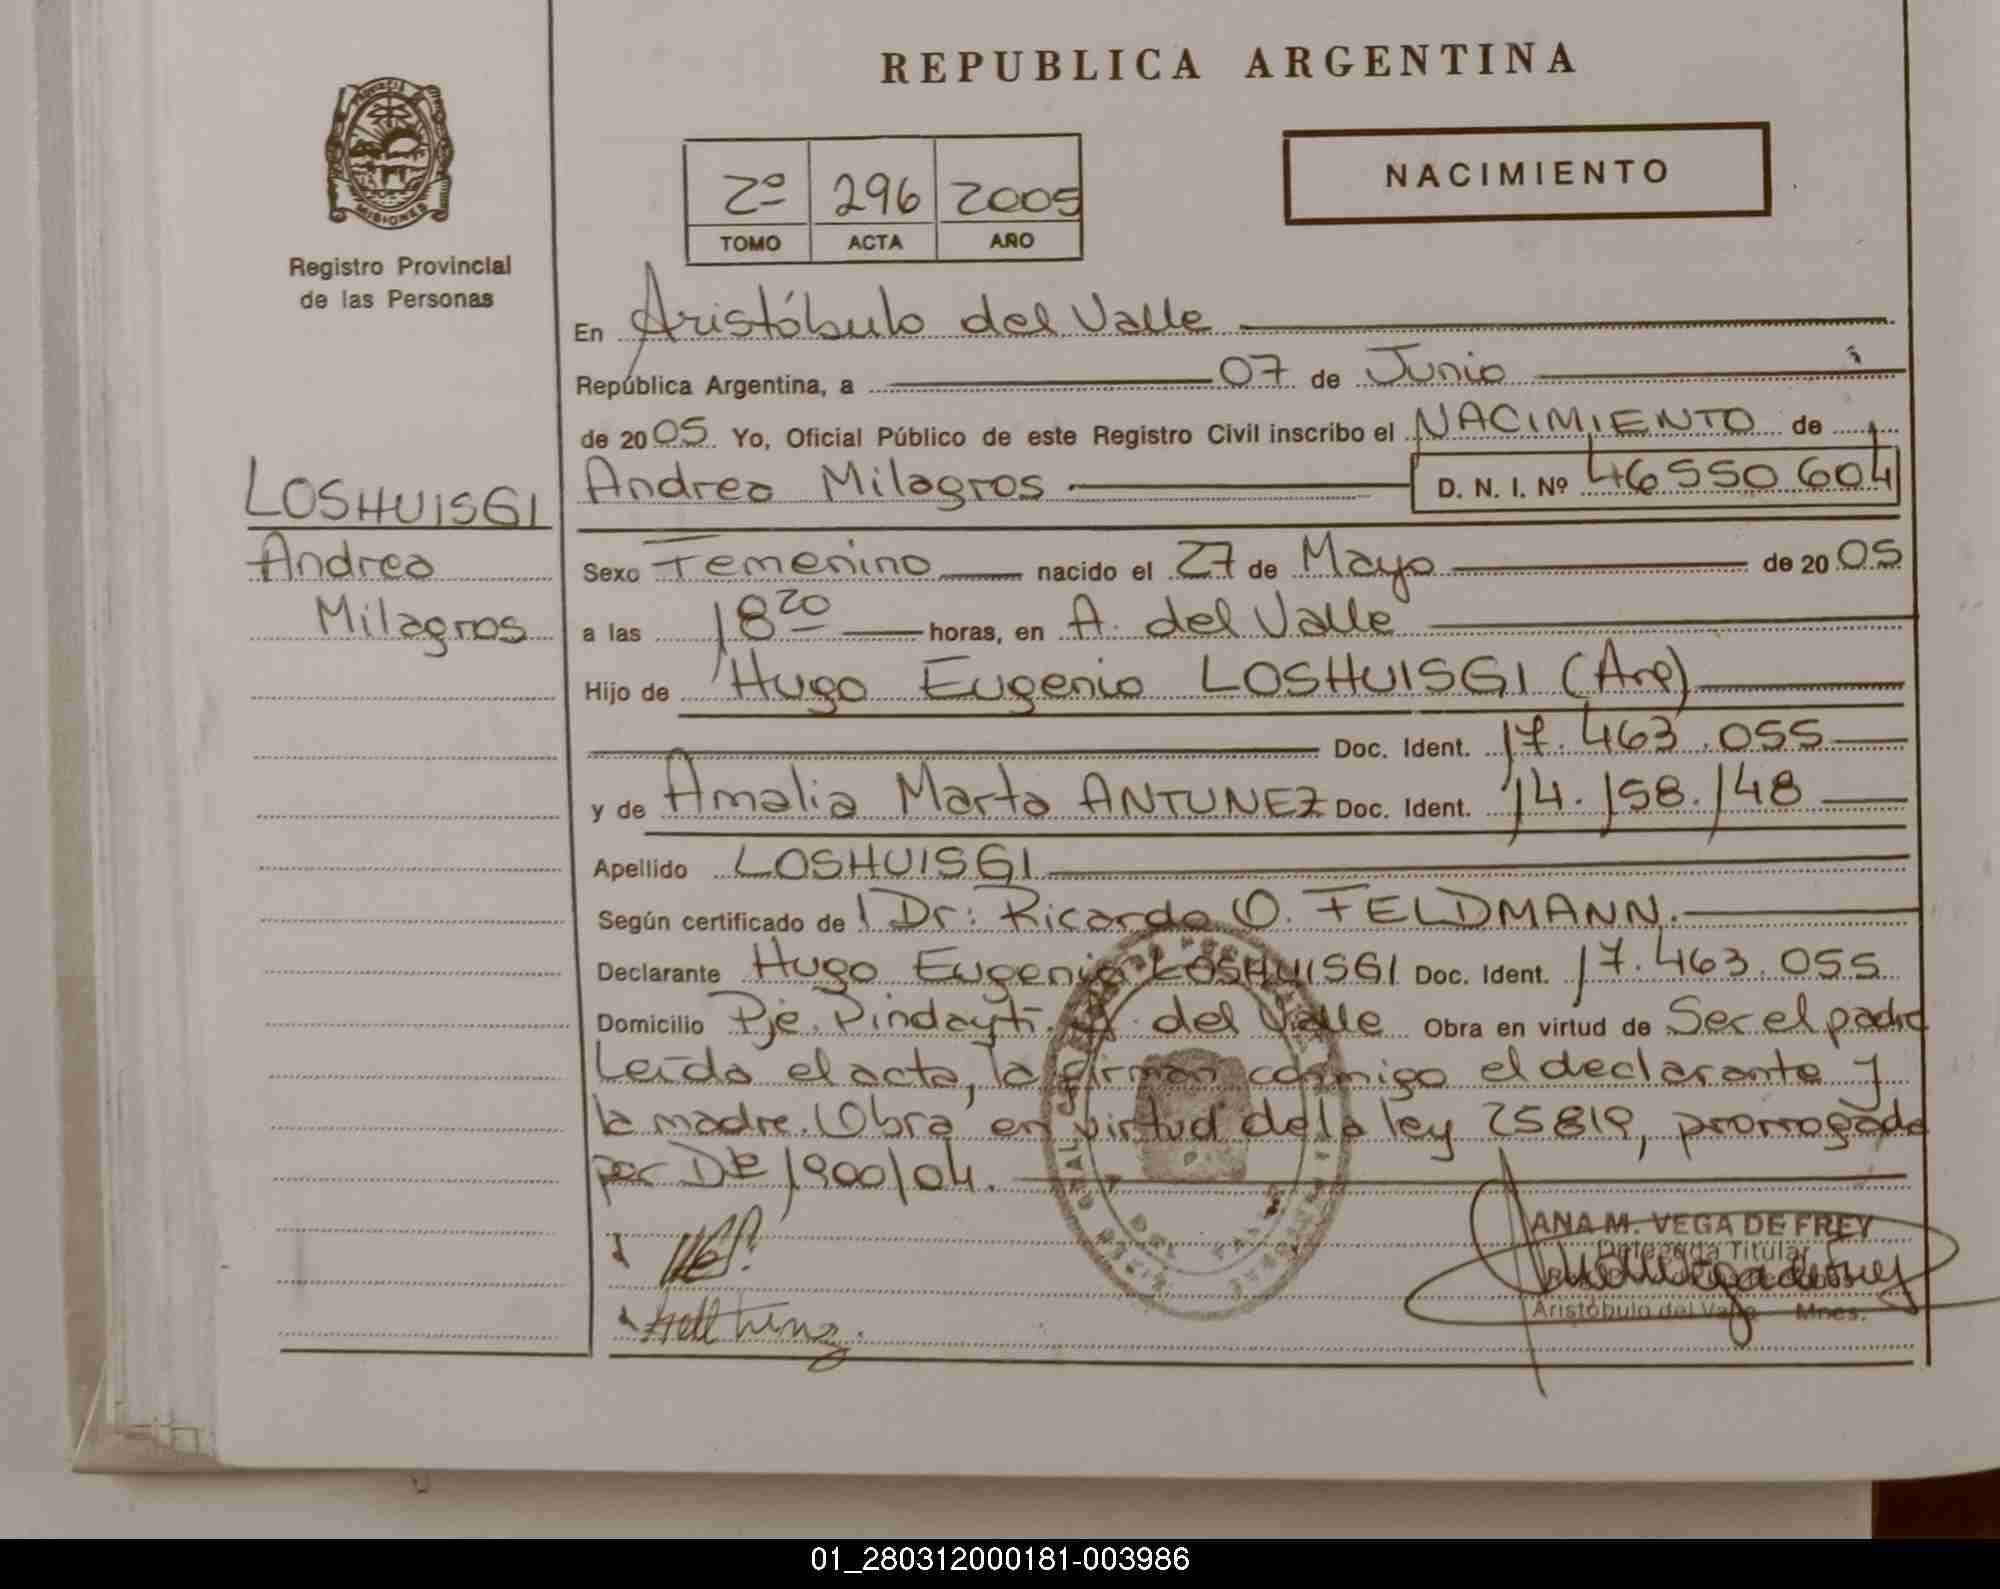 REPUBLICA ARGENTINA
PROVINCIA DE
MISIONES
Registro Provincial
de las Personas
2º 296 2005
TOMO ACTA AÑO
NACIMIENTO
LOSHUISGI
Andrea
Milagros
En Aristóbulo del Valle
República Argentina, a 07 de Junio
de 2005 Yo, Oficial Público de este Registro Civil inscribo el NACIMIENTO de
Andrea Milagros D. N. I. Nº 46550604
Sexo Femenino nacido el 27 de Mayo de 2005
a las 18 20 horas, en A. del Valle
Hijo de Hugo Eugenio LOSHUISGI (Arg)
Doc. Ident. 17.463.055
y de Amalia Marta ANTUNEZ Doc. Ident. 14.158.148
Apellido LOSHUISGI
Según certificado de Dr: Ricardo O. FELDMANN.
Declarante Hugo Eugenio LOSHUISGI Doc. Ident. 17.463.055
Domicilio Pje. Pindayti. A. del Valle Obra en virtud de Ser el padre
Leída el acta, la firman conmigo el declarante y
la madre. Obra en virtud de la ley 25819, prorrogada
por DE 1900/04.
ANA M. VEGA DE FREY
Delegada Titular
Aristóbulo del Valle Mnes.
01_280312000181-003986